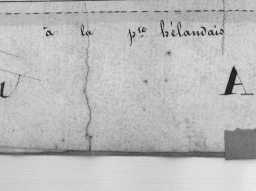 à la pse hélandais
A